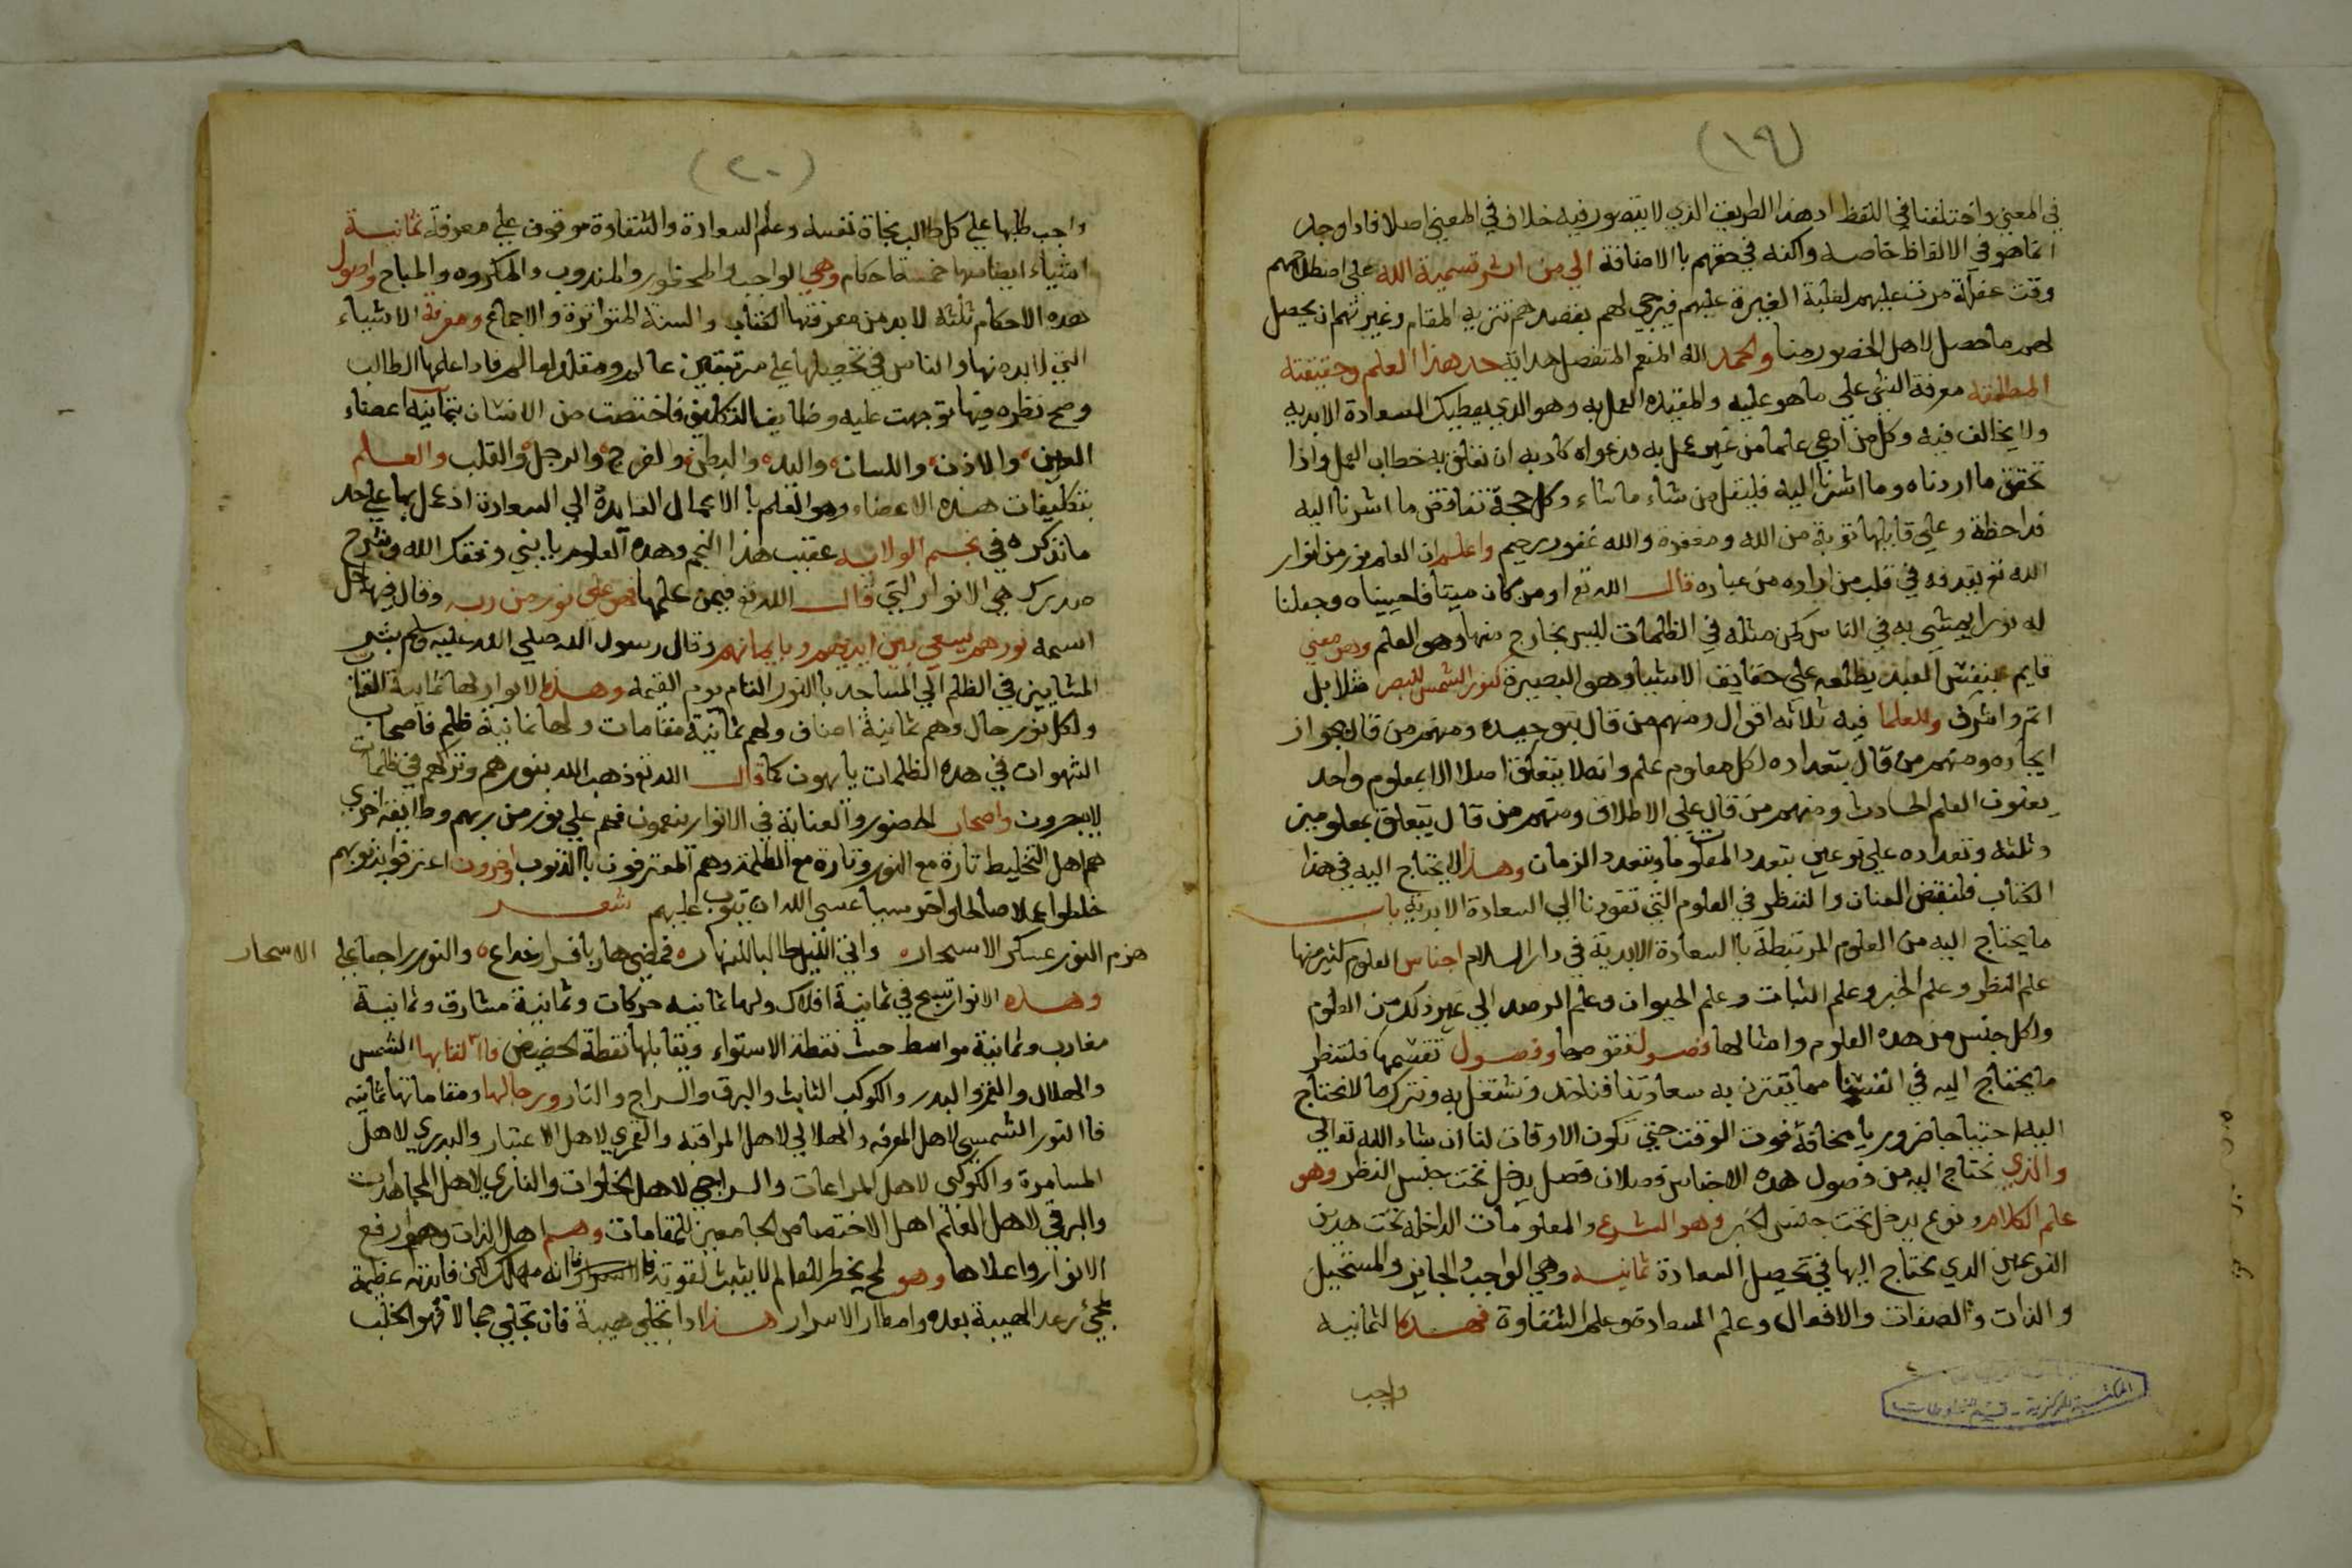 (١٩)
في المعني واختلفنا في اللفظ اد هذا الطريق الذي لا يتصور فيه خلاف في المعني اصلا فاداوجد
انما هو في الالفاظ خاصه واكنه في حقهم باالاضافة الي من اثر تسمية الله علي اصطلاحهم
وقت غفلة مرت عليهم لغلبة الغيرة عليهم فيرجي لهم بقصدهم تنزيه المقام وغيرتهم ان يحصل
لهم ما حصل لاهل الحضور منا والحمد الله المنعم المتفضل هداية حد هذا العلم وحقيقته
المطلقه معرفة الشي علي ما هو عليه والمقيده العمل به وهو الذي يعطيك السعادة الابديه
ولا يخالف فيه وكل من ادعي علما من غير عمل به فدعواه كادبه ان تعلق به خطاب العمل واذا
تحقق ما اردناه وما اشرنا اليه فليقل من شاء ماشاء وكل حجة تناقض ما اشرنا اليه
فداحظة وعلي قايلها توبة من الله ومغفرة والله غفور رحيم واعلم ان العلم نور من انوار
الله تع يقدفه في قلب من اراده من عباده قال الله تع او من كان ميتا فاحييناه وجعلنا
له نورا يمشي به في الناس كمن مثله في الظلمات ليس بخارج منها وهو العلم وهو معني
قايم بنفس العبد يطلعه علي حقايق الاشياء وهو البصيرة كنور الشمس للبصر مثلا بل
اتم واشرف وللعلما فيه ثلاثه اقوال ومنهم من قال بتوحيده ومنهم من قال بجواز
ايجاده ومنهم من قال بتعداده لكل معلوم علم وانه لا يتعلق اصلا الا بمعلوم واحد
يعنون العلم الحادث ومنهم من قال علي الاطلاق ومنهم من قال يتعلق بمعلومين
وثلثه وتعداده علي نوعين بتعدد المعلومات وبتعدد الزمان وهذا لا يحتاج اليه في هذا
الكتاب فلنقبض العنان والننظر في العلوم التي تقودنا الي السعادة الابدية باب
ما يحتاج اليه من العلوم المرتبطة باالسعادة الابدية في دار السلام اجناس العلوم كثيره منها
علم النظر وعلم الخبر وعلم النبات وعلم الحيوان وعلم الرصد الي غير ذلك من العلوم
ولكل جنس من هده العلوم وامثالها فصول تقومها وفصول تقسمها فلننظر
ما يحتاج اليه في انفسنا مما تقترن به سعادتنا فناخده ونشتغل به ونترك ما لا نحتاج
اليه احتياجا ضروريا مخافة فوت الوقت حتي تكون الاوقات لنا ان شاء الله تعالي
والذي نحتاج اليه من فصول هده الاجناس فصلان فصل يدخل تحت جنس النظر وهو
علم الكلام ونوع يدخل تحت جنس الخبر وهو الشرع والمعلومات الداخله تحت هدين
النوعين الدي نحتاج اليها في تحصيل السعادة ثمانيه وهي الواجب والجايز والمستحيل
والذات والصفات والافعال وعلم السعادة وعلم الشقاوة فهده الثمانيه
واجب
المكتبة المركزية - قسم المخطوطات
(٢٠)
واجب طلبها علي كل طالب نجاة نفسه وعلم السعادة والشقاوة موقوف علي معرفة ثمانية
اشياء ايضا منها خمسة احكام وهي الواجب والمحظور والمندوب والمكروه والمباح واصول
هده الاحكام ثلثه لابد من معرفتها الكتاب والسنة المتواترة والاجماع ومعرفة الاشياء
التي لابد منها والناس في تحصيلها علي مرتبتين عالم ومقلد لعالم فادا علمها الطالب
وصح نظره فيها توجهت عليه وظايف التكليف فاختصت من الانسان بثمانيه اعضاء
العين والاذن واللسان واليد والبطن والفرج والرجل والقلب والعلم
بتكليفات هده الاعضاء وهو العلم باالاعمال القايدة الي السعادة اذ عمل بها علي حد
مانذكره في نجم الولايه عقيب هذا النجم وهده العلوم يا بني وفقك الله وشرح
صدرك هي الانوار التي قال الله تع فيمن علمها فهو علي نور من ربه وقال فيها اهل
اسمه نورهم يسعي بين ايديهم وبايمانهم وقال رسول الله صلي الله عليه وسلم بشر
المشايين في الظلم الي المساجد باالنور التام يوم القيمه وهذه الانوار لها ثمانية القاب
ولكل نور حال وهم ثمانية اصناف ولهم ثمانية مقامات ولها ثمانية ظلم فاصحاب
الشهوات في هده الظلمات يايهون كما قال الله تع ذهب الله بنورهم وتركهم في ظلمات
لا يبصرون واصحاب الحضور والعناية في الانوار ينعمون فهم علي نور من ربهم وطايفة اخري
هم اهل التخليط تارة مع النور وتارة مع الظلمة وهم المعترفون باالذنوب واخرون اعترفوا بذنوبهم
خلطوا عملا صالحا واخر سييا عسي الله ان يتوب عليهم شعر
هزم النور عسكر الاسحار واتي الليل طالبا للنهار فمضي هاربا فراخداع والنور راجعا علي الاسحار
وهذه الانوار تسبح في ثمانية افلاك ولها ثمانيه حركات وثمانية مشارق وثمانية
مغارب وثمانية مواسط حيث نقطة الاستواء ويقابلها نقطة الحضيض فاالقابها الشمس
والهلال والقمر والبدر والكوكب الثابت والبرق والسراج والنار ورجالها ومقاماتها ثمانيه
فاالنور الشمسي لاهل المعرفه والهلالي لاهل المراقبه والقمري لاهل الاعتبار والبدري لاهل
المسامرة والكوكبي لاهل المراعات والسراجي لاهل الخلوات والناري لاهل المجاهدات
والبرقي لاهل العلم اهل الاختصاص الجامعين للمقامات وهم اهل الذات وهو ارفع
الانوار واعلاها وهو لمح يخطر للعالم لا يثبت لقوته فانه مهلك لكن فايدته عظيمة
يجئ رعد الهيبة بعده وامطار الاسرار هذا ادا تجلي هيبة فان تجلي جمالا فهو الخلب